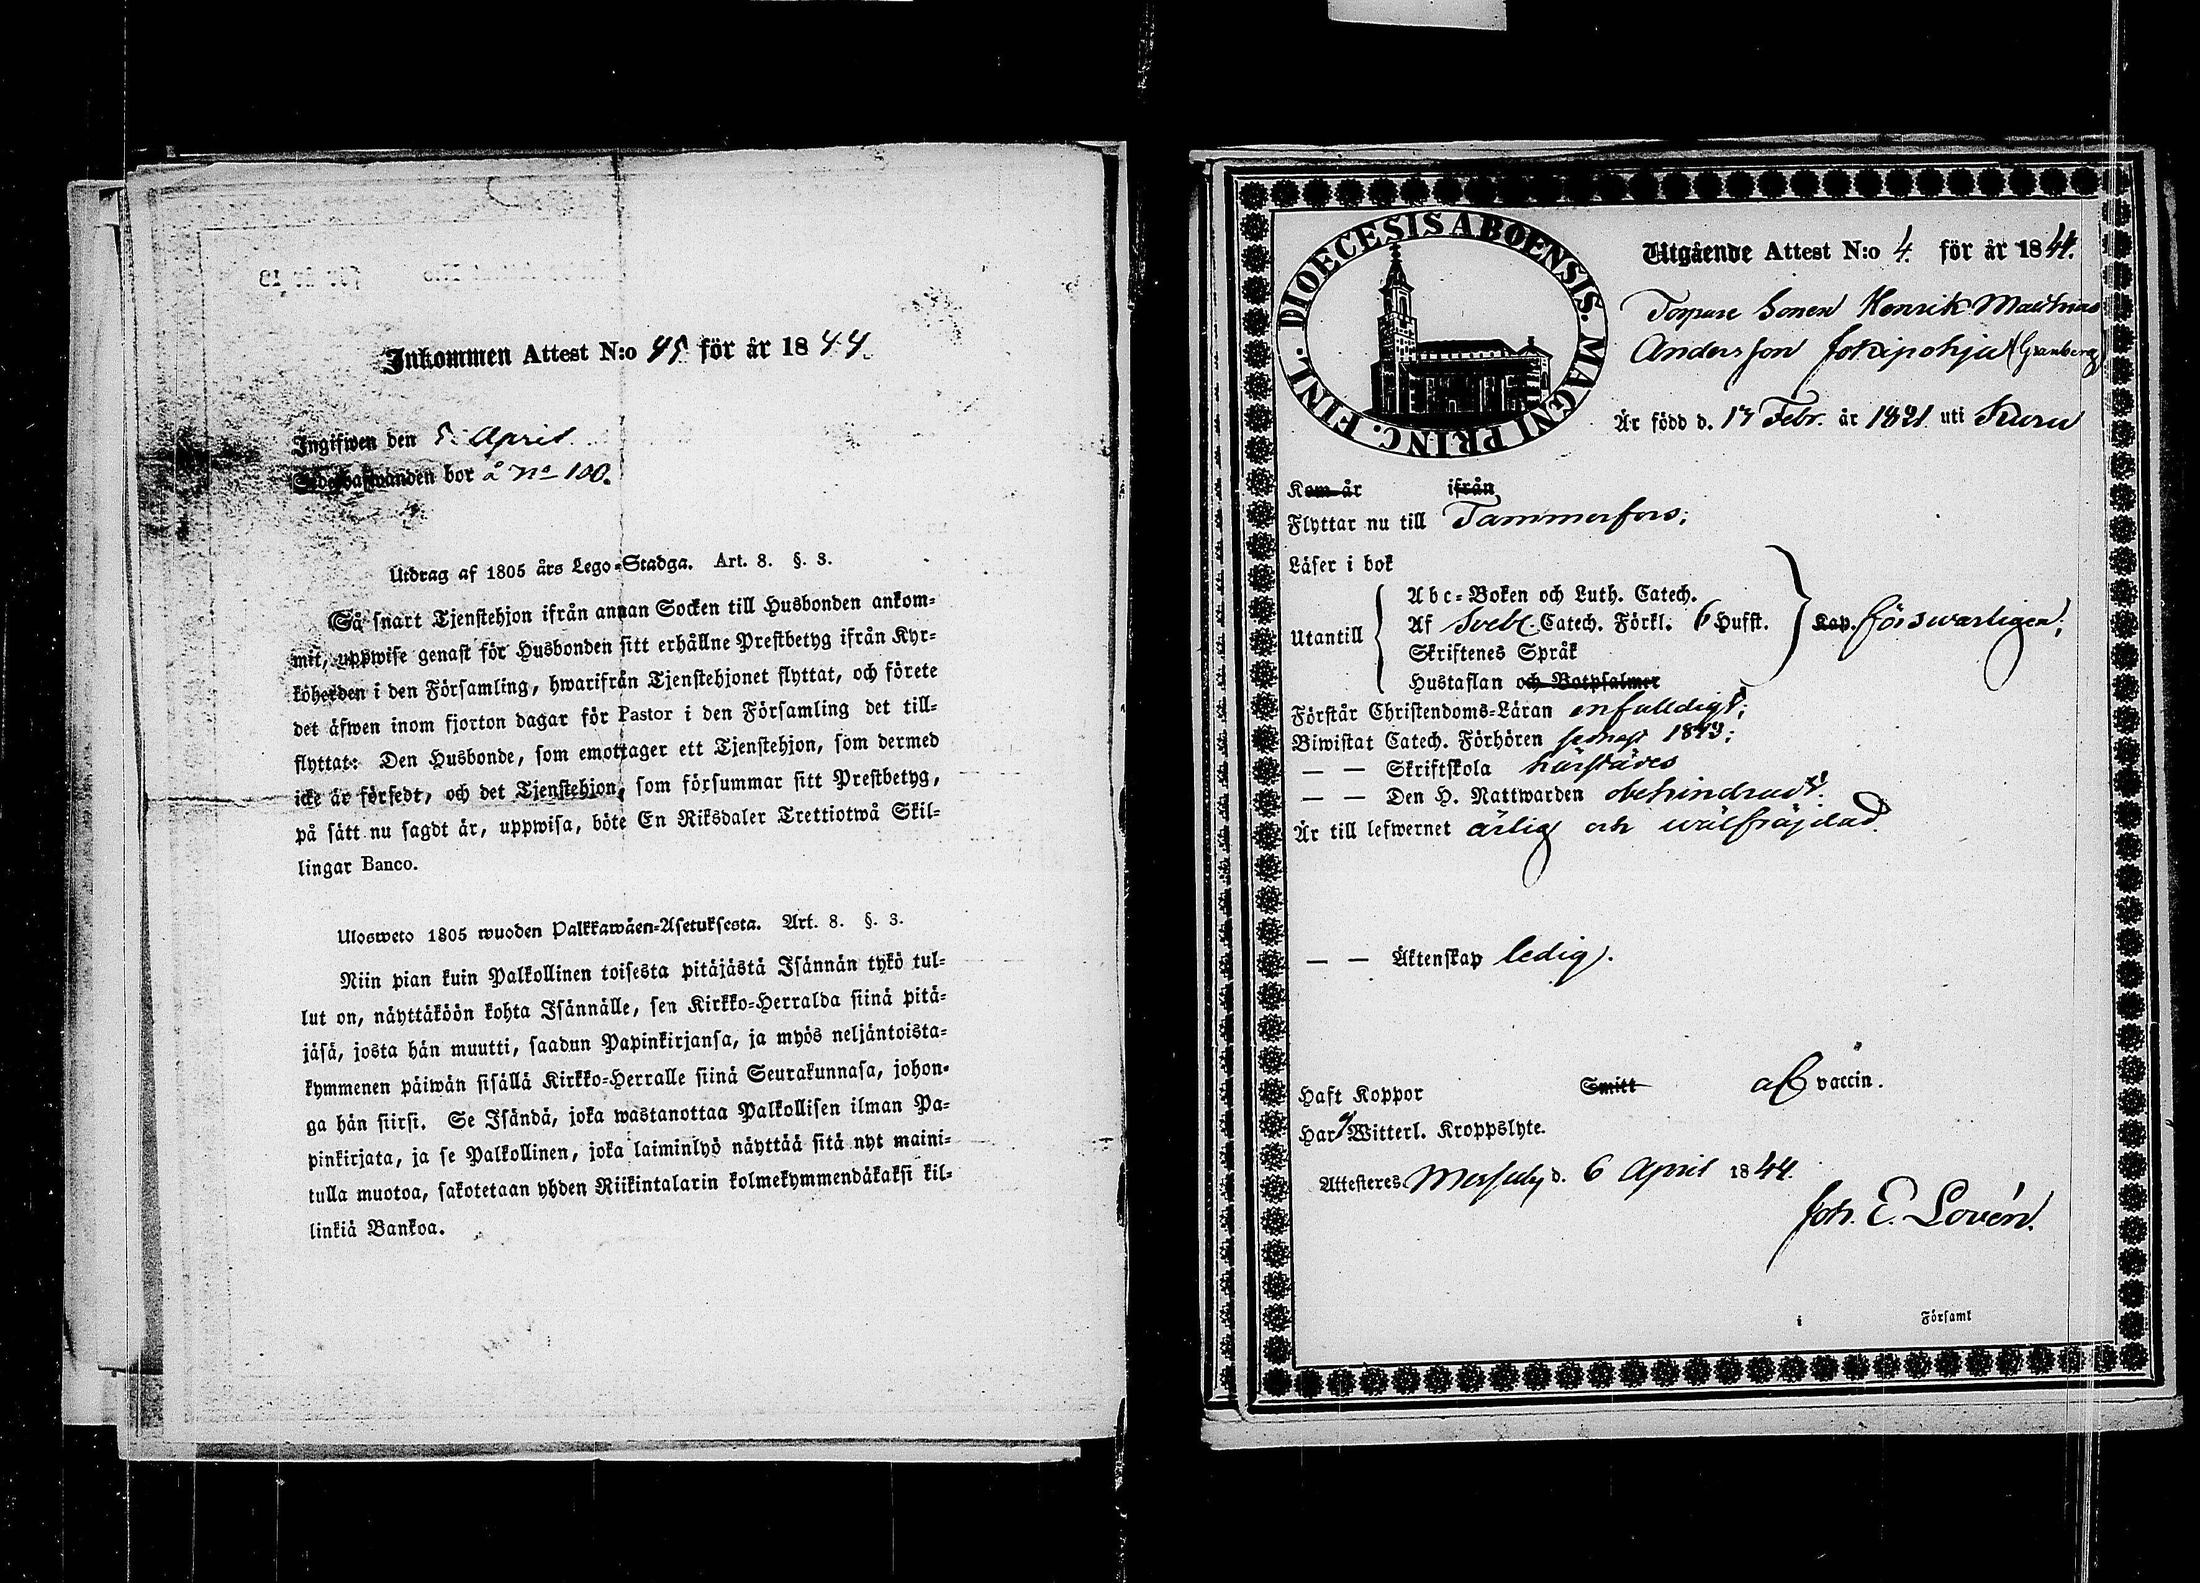 Inkommen Attest N:o 45. för år 1844.
Ingifwen den 5. April
bor å No 100.
Utdrag af 1805 års Lego-Stadga. Art. 8. §. 3.
Så snart Tjenstehjon ifrån annan Socken till Husbonden ankom=
mit, uppwise genast för Husbonden sitt erhållne Prestbetyg ifrån Kyr=
koherden i den Församling, hwarifrån Tjenstehjonet flyttat, och förete
det äfwen inom fjorton dagar för Pastor i den Församling det till=
flyttat: Den Husbonde, som emottager ett Tjenstehjon, som dermed
icke är försedt, och det Tjenstehjon, som försummar sitt Prestbetyg,
på sätt nu sagdt är, uppwisa, böte En Riksdaler Trettiotwå Skil=
lingar Banco.
Ulosweto 1805 wuoden Palkkawäen=Asetuksesta. Art. 8. §. 3.
Niin pian kuin Palkollinen toisesta pitäjästä Isännän tykö tul=
lut on, näyttäköön kohta Isännälle, sen Kirkko=Herralda siinä pitä=
jäsä, josta hän muutti, saadun Papinkirjansa, ja myös neljäntoista=
kymmenen päiwän sisällä Kirkko=Herralle siinä Seurakunnasa, johon=
ga hän siirsi. Se Isändä, joka wastanottaa Palkollisen ilman Pa=
pinkirjata, ja se Palkollinen, joka laiminlyö näyttää sitä nyt maini=
tulla muotoa, sakotetaan yhden Riikintalarin kolmekymmendäkaksi kil=
linkiä Bankoa.
DIOECESIS ABOENSIS. MAGNI PRINC. FINL.
Utgående Attest N:o 4. för år 1844.
Torpare Sonen Henrik Matthias
Andersson Jokipohja (Granberg)
Är född d. 17 Febr. år 1821 uti Kuru
Kom år ifrån
Flyttar nu till Tammerfors;
Läser i bok
Utantill
Abc=Boken och Luth. Catech.
Af Sveb. Catech. Förkl. 6 Hufst.
Skriftenes Språk
Hustaflan och Botpsalmer
Kap. försvarligen;
Förstår Christendoms=Läran enfaldigt;
Biwistat Catech. Förhören senast 1843;
— — Skriftskola härstädes
— — Den H. Nattwarden obehindrad;
Är till lefwernet ärlig och wälfräjdad.
— — Äktenskap ledig.
Haft Koppor Smitt af vaccin.
Har Witterl. Kroppslyte.
Attesteras d. 6 April 1844.
Joh. E. Lovén.
i Församl